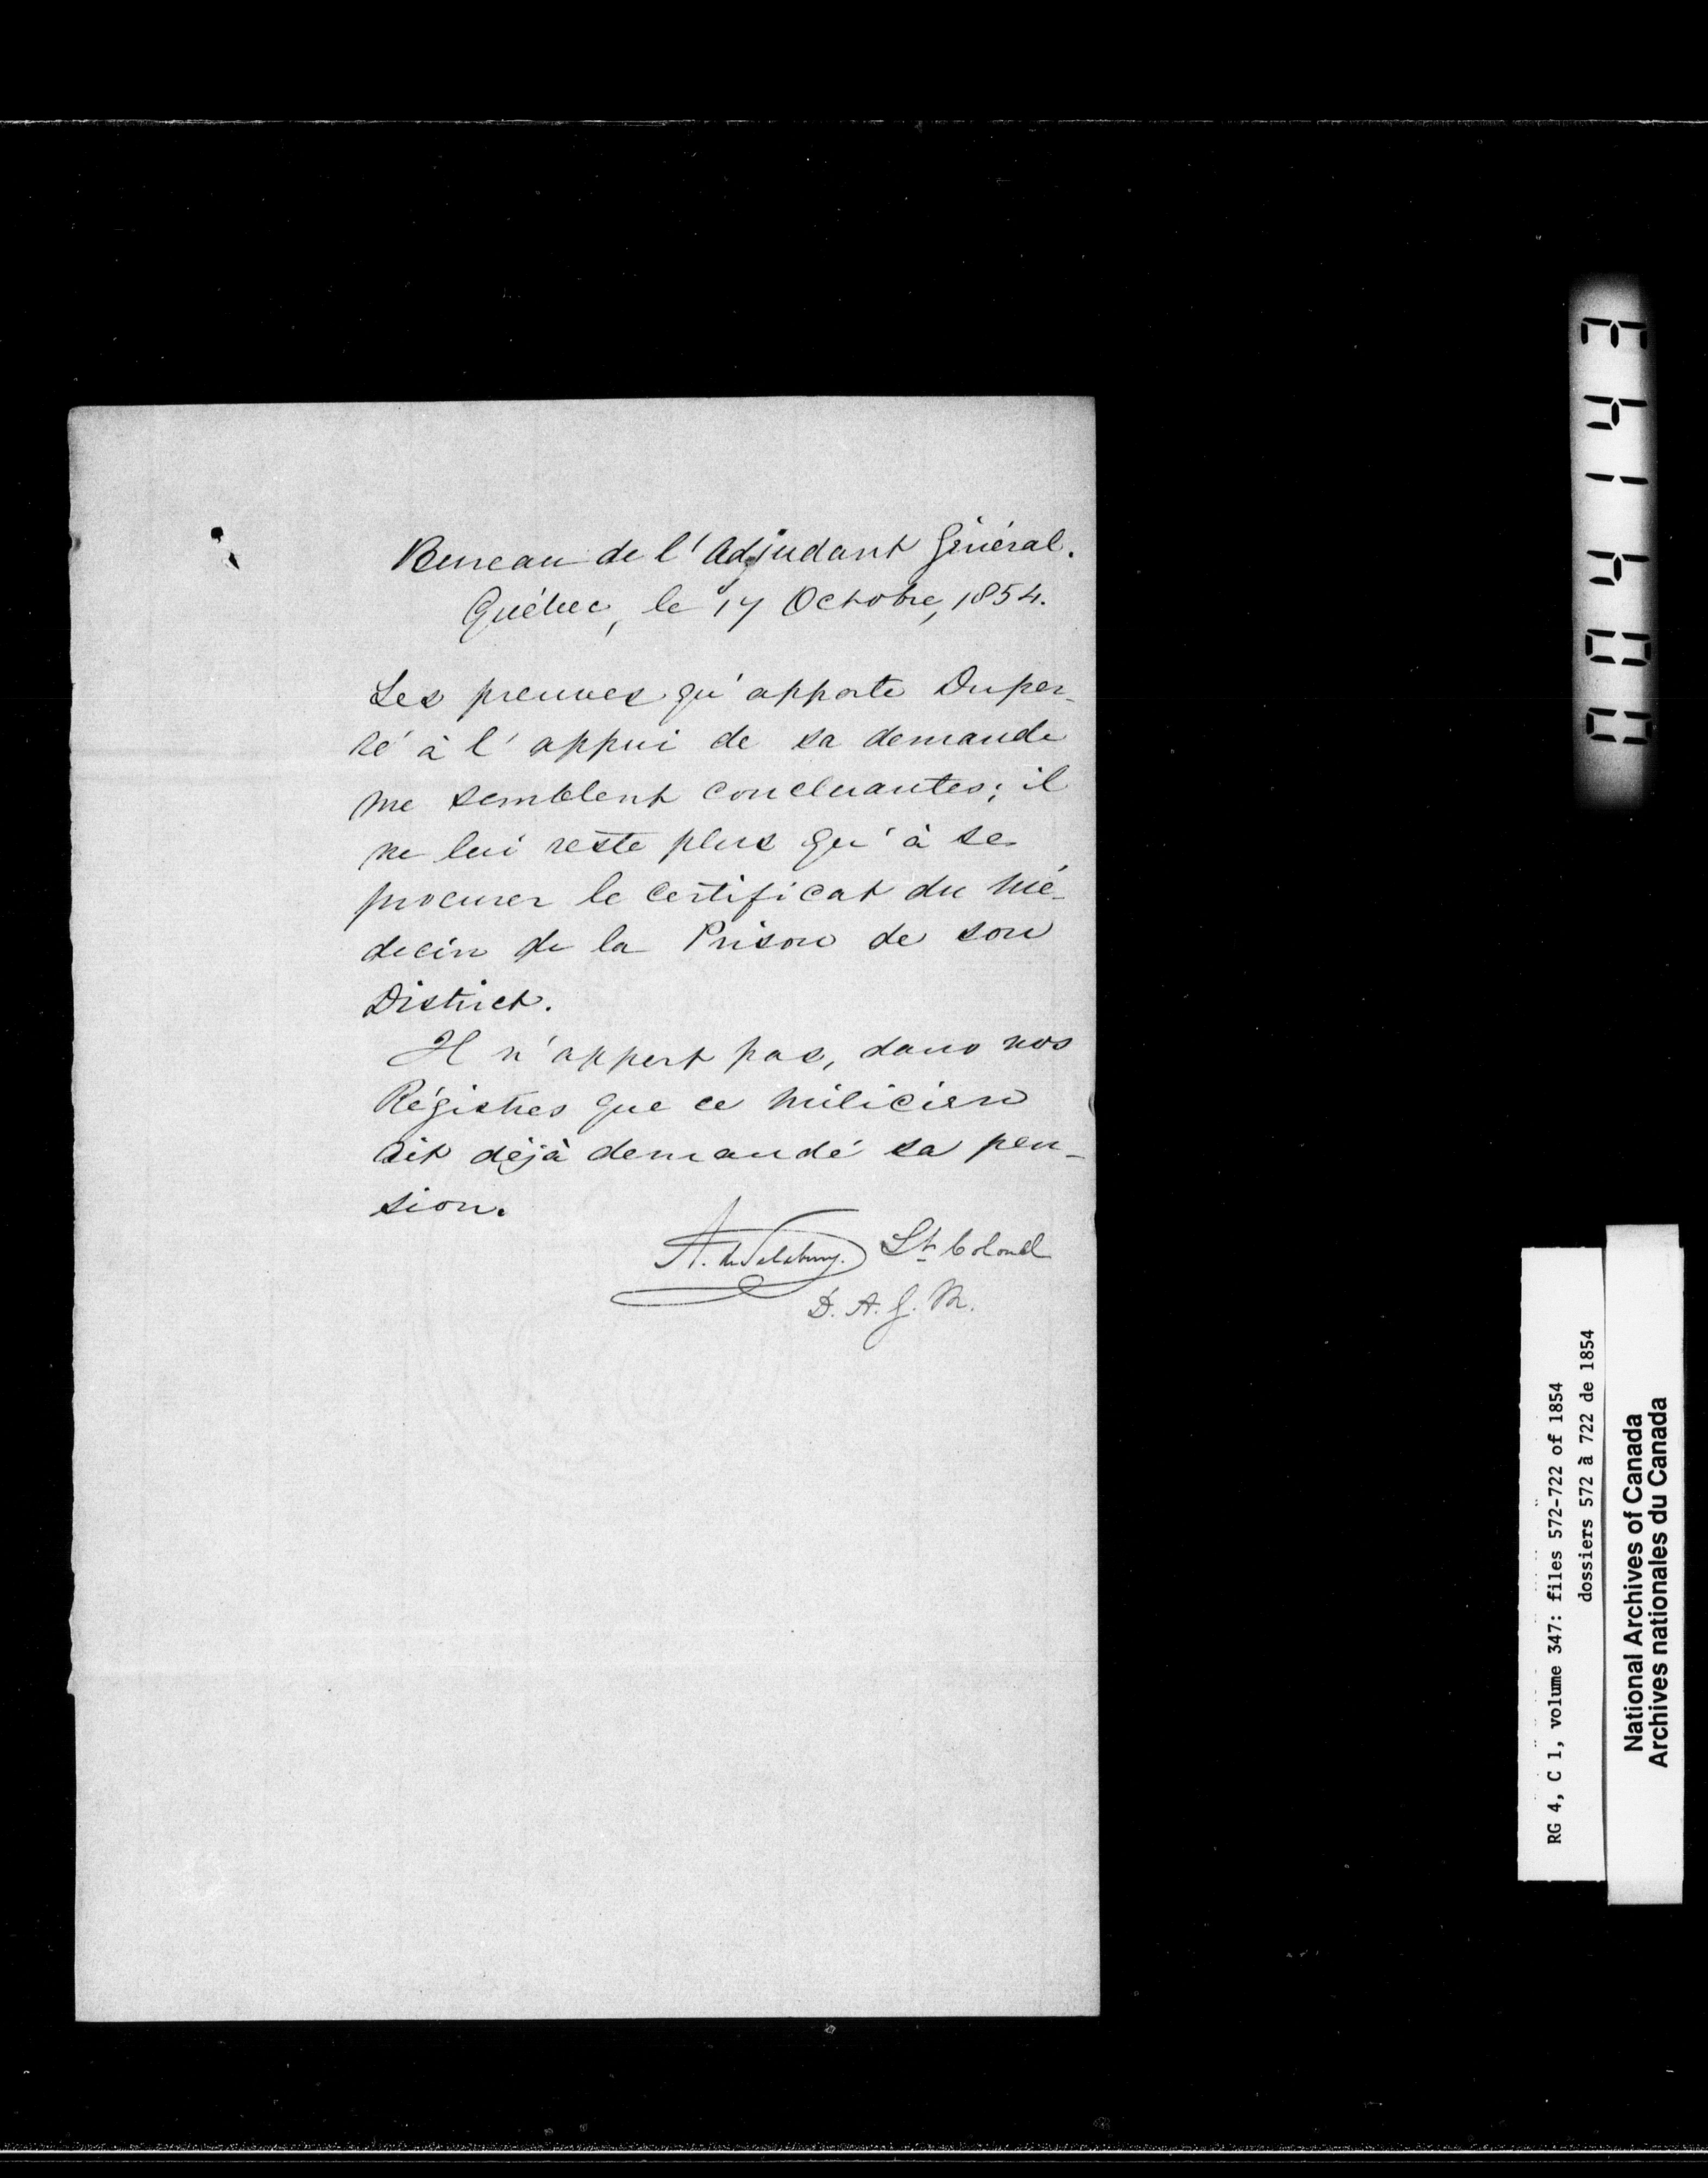 Bureau de l'Adjudant Général.
Québec, le 17 Octobre, 1854.
Les preuves qu'apporte Duper-
ré à l'appui de sa demande
me semblent concluantes; il
ne lui reste plus qu'à se
procurer le Certificat du mé-
decin de la Prison de son
District.
Il n'appert pas, dans nos
Régistres que ce milicien
ait déjà demandé sa pen-
sion.
A. de Salaberry. Lt. Colonel
D. A. G. M.
RG 4, C 1, volume 347: files 572-722 of 1854
dossiers 572 à 722 de 1854
National Archives of Canada
Archives nationales du Canada